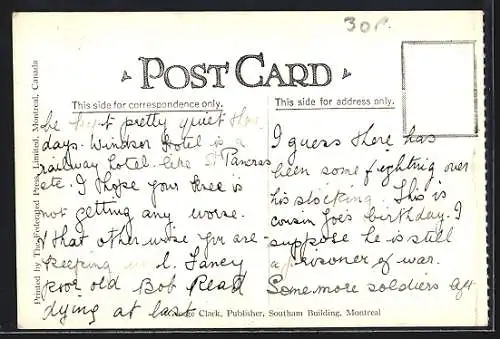 30P.
POST CARD
This side for correspondence only.
This side for address only.
be kept pretty quiet
days. Windsor Hotel is a
railway hotel. like St Pancras
etc. I hope your knee is
not getting any worse.
& that otherwise you are
keeping well. Fancy
poor old Bob Read
dying at last
I guess there has
been some fighting over
his stocking. This is
cousin Joe's birthday. I
suppose he is still
a prisoner of war.
Some more soldiers
Printed by The Federated Press, Limited, Montreal, Canada
Clark, Publisher, Southam Building, Montreal